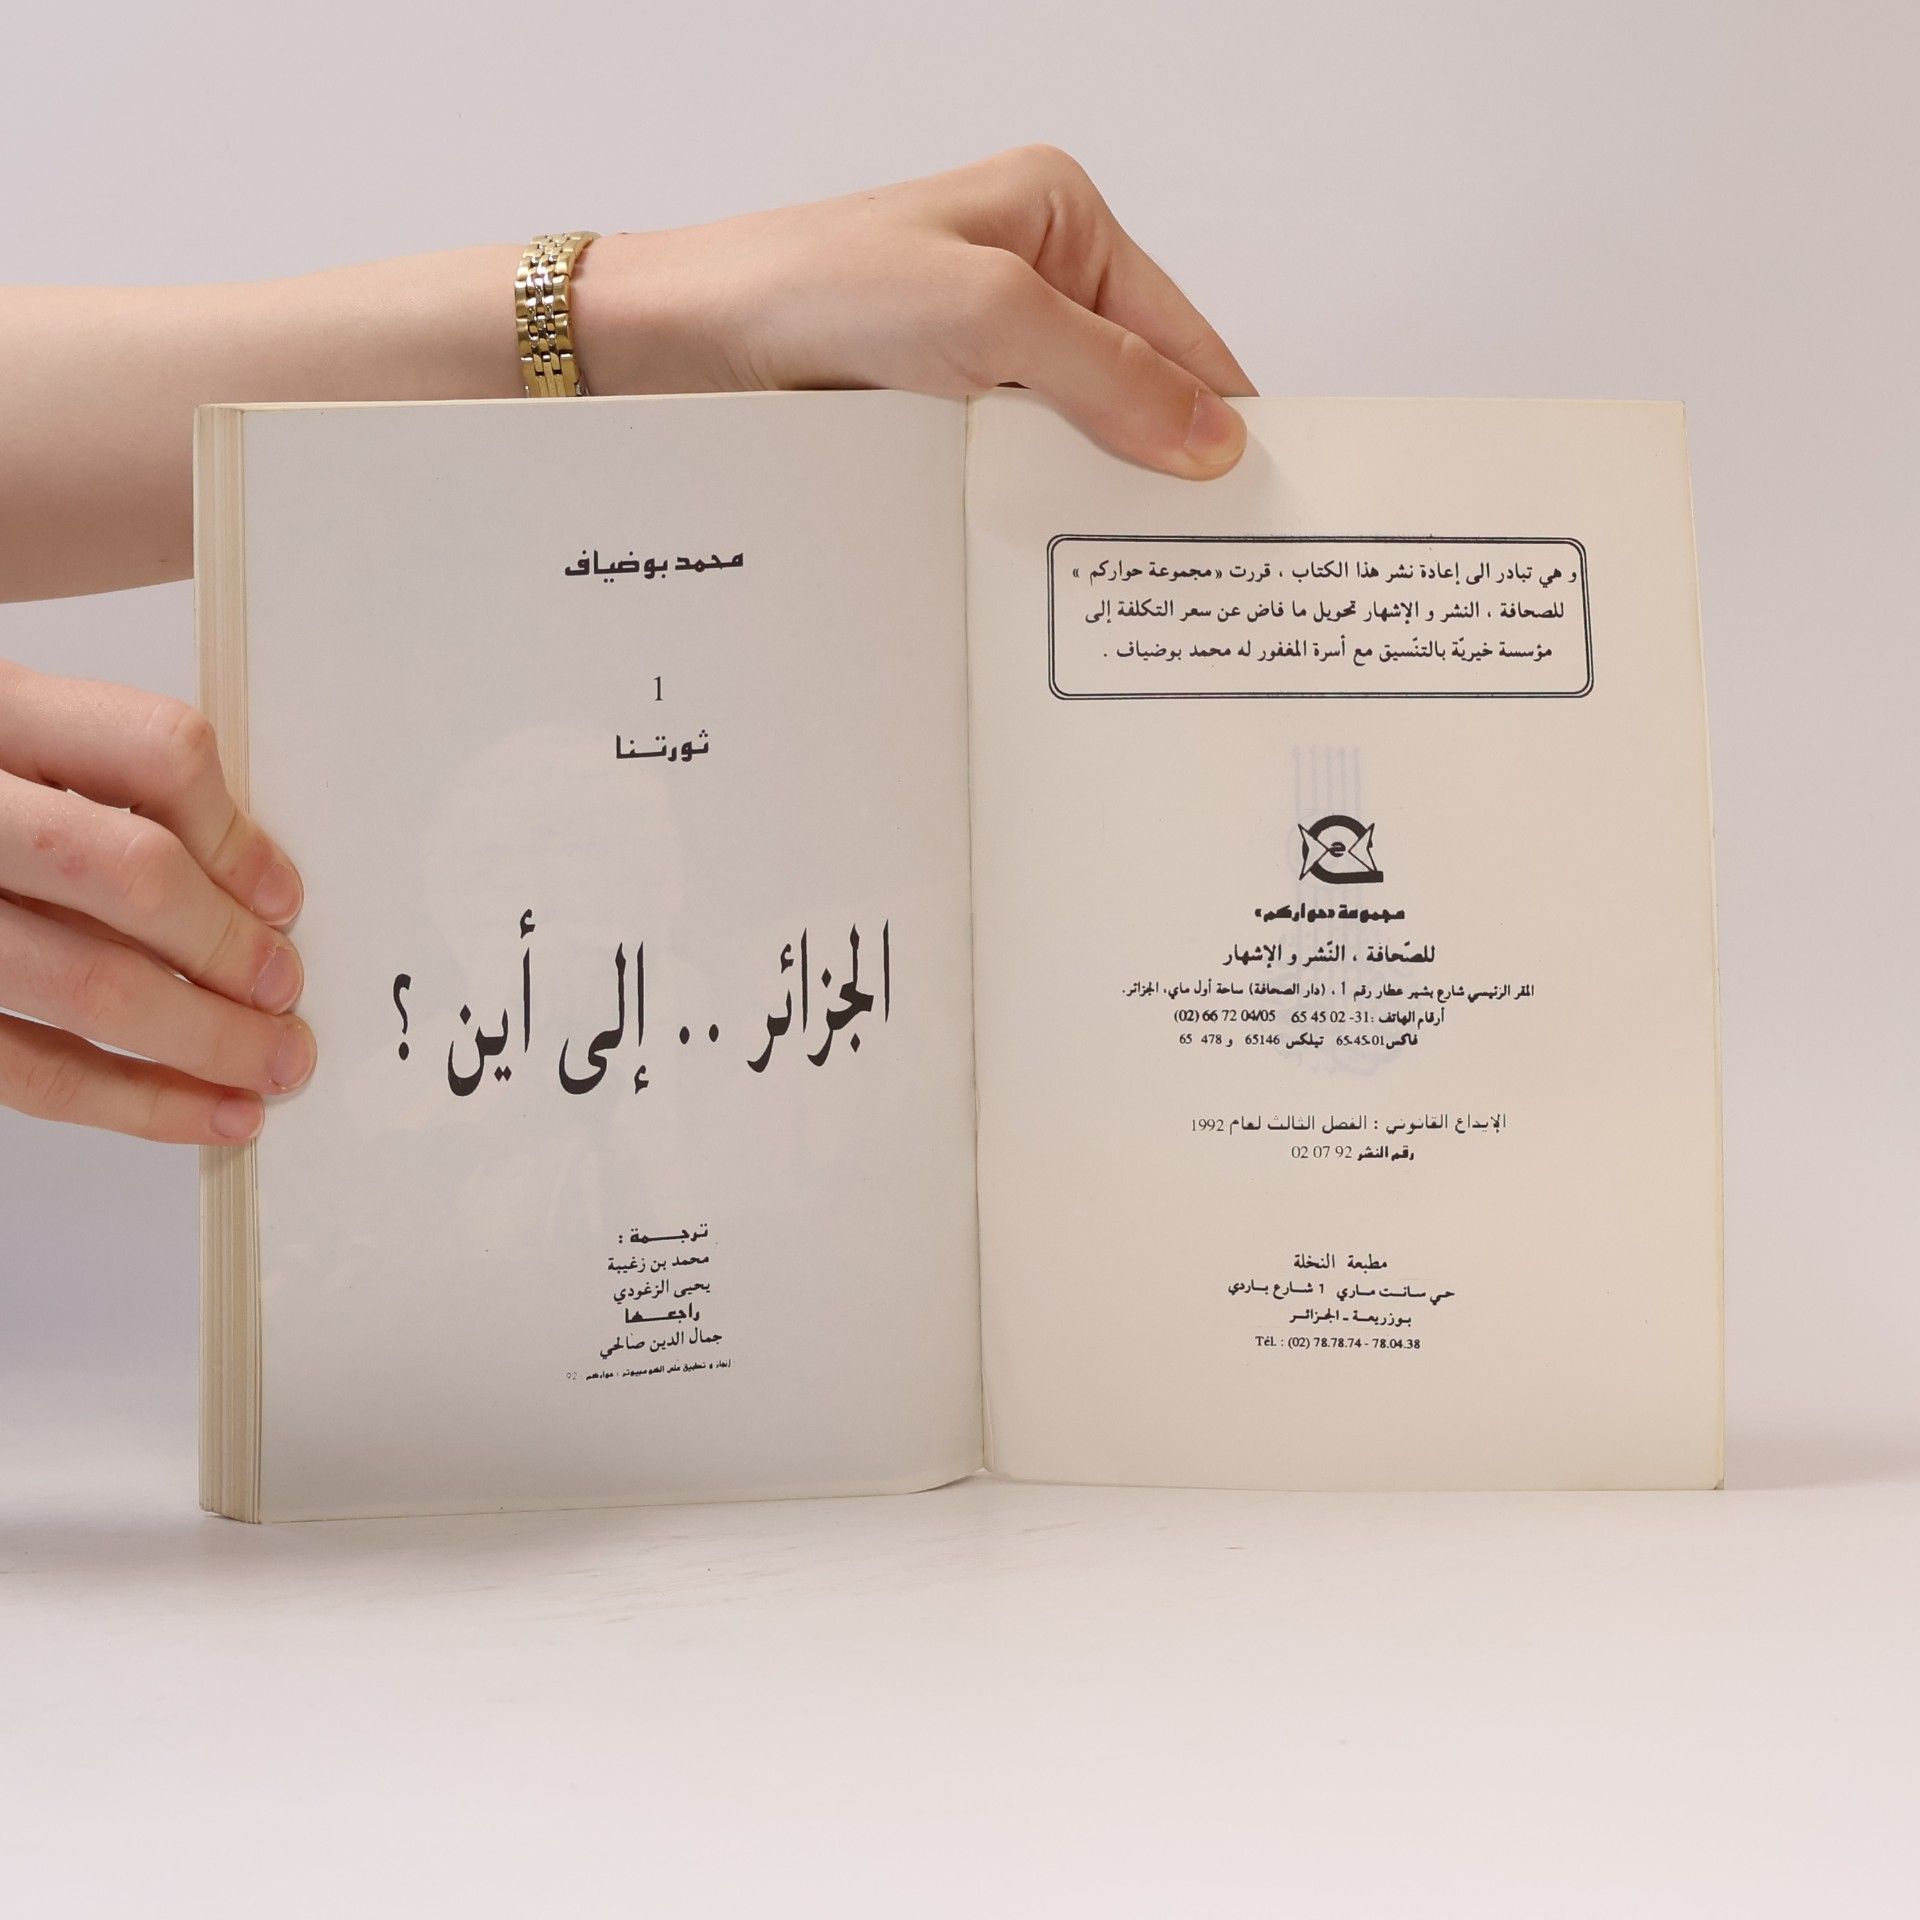 و هي تبادر الى إعادة نشر هذا الكتاب ، قررت «مجموعة حواركم »
للصحافة ، النشر و الإشهار تحويل ما فاض عن سعر التكلفة إلى
مؤسسة خيريّة بالتنّسيق مع أسرة المغفور له محمد بوضياف .
مجموعة «حواركم»
للصّحافة ، النّشر و الإشهار
المقر الرئيسي شارع بشير عطار رقم 1 ، (دار الصحافة) ساحة أول ماي، الجزائر.
أرقام الهاتف :31- 02 45 65 (02) 66 72 04/05
فاكس65.45.01 تيلكس 65146 و 478 65
الإيداع القانوني : الفصل الثالث لعام 1992
رقم النشر 92 07 02
مطبعة النخلة
حي سانت ماري 1 شارع باردي
بوزريعة - الجزائر
Tél. : (02) 78.78.74 - 78.04.38
محمد بوضياف
1
ثورتنا
الجزائر .. إلى أين ؟
ترجمة :
محمد بن زغيبة
يحيى الزغودي
راجعها
جمال الدين صالحي
إنجاز و تطبيق على الكومبيوتر : حواركم . 92